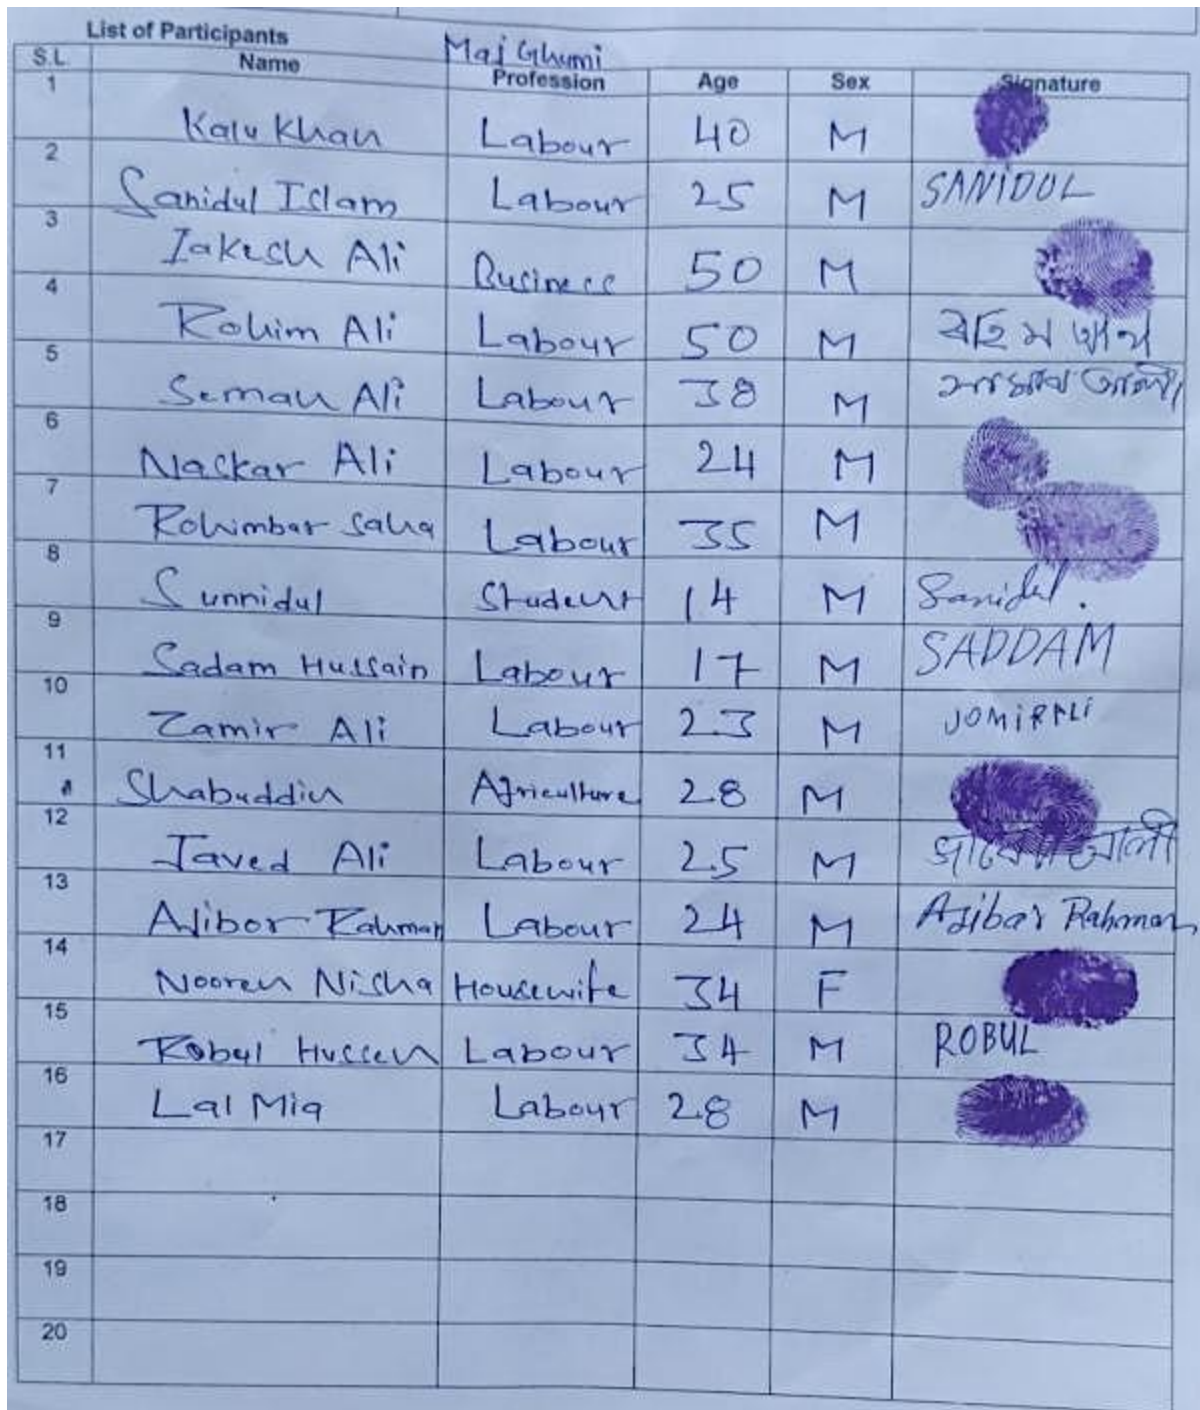 List of Participants
Maj Ghumi
S.L. Name Profession Age Sex Signature
1 Kalu Khan Labour 40 M
2 Sanidul Islam Labour 25 M SANIDUL
3 Iakesh Ali Business 50 M
4 Rohim Ali Labour 50 M
5 Seman Ali Labour 38 M
6 Naskar Ali Labour 24 M
7 Rohimbar saha Labour 35 M
8 Sunnidul Student 14 M Sanidul.
9 Sadam Hussain Labour 17 M SADDAM
10 Zamir Ali Labour 23 M JOMIRALI
11 Shabuddin Agriculture 28 M
12 Javed Ali Labour 25 M
13 Ajibor Rahman Labour 24 M Ajibar Rahman
14 Nooren Nisha Housewife 34 F
15 Robul Hussen Labour 34 M ROBUL
16 Lal Mia Labour 28 M
17
18
19
20